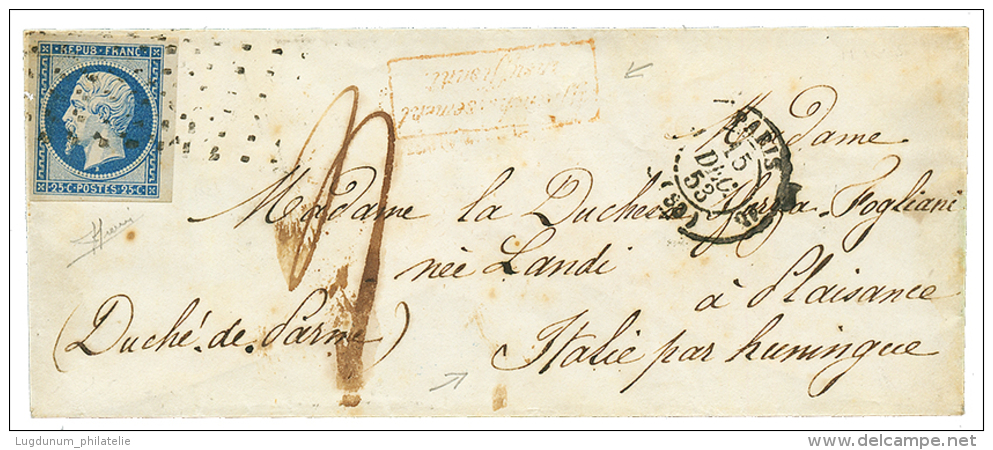 REPUB. FRANC.
25 C. POSTES. 25 C.
Affranchissement
insuffisant.
PARIS
15
DEC.
53
(60)
Madame
Madame la Duchesse Fogliani
née Landi
à Plaisance
(Duché de Parme)
Italie par huningue
Lugdunum_philatelie
www.delcampe.net